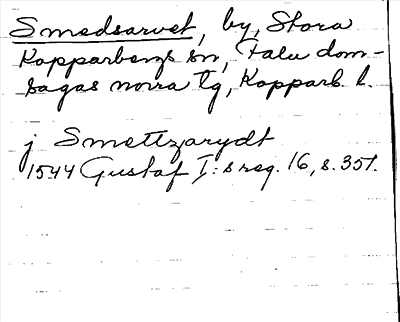 Smedsarvet, by, Stora
Kopparbergs sn, Falu dom-
sagas norra tg, Kopparb. l.
j Smettzarydt
1544 Gustaf I:s reg. 16, s. 351.